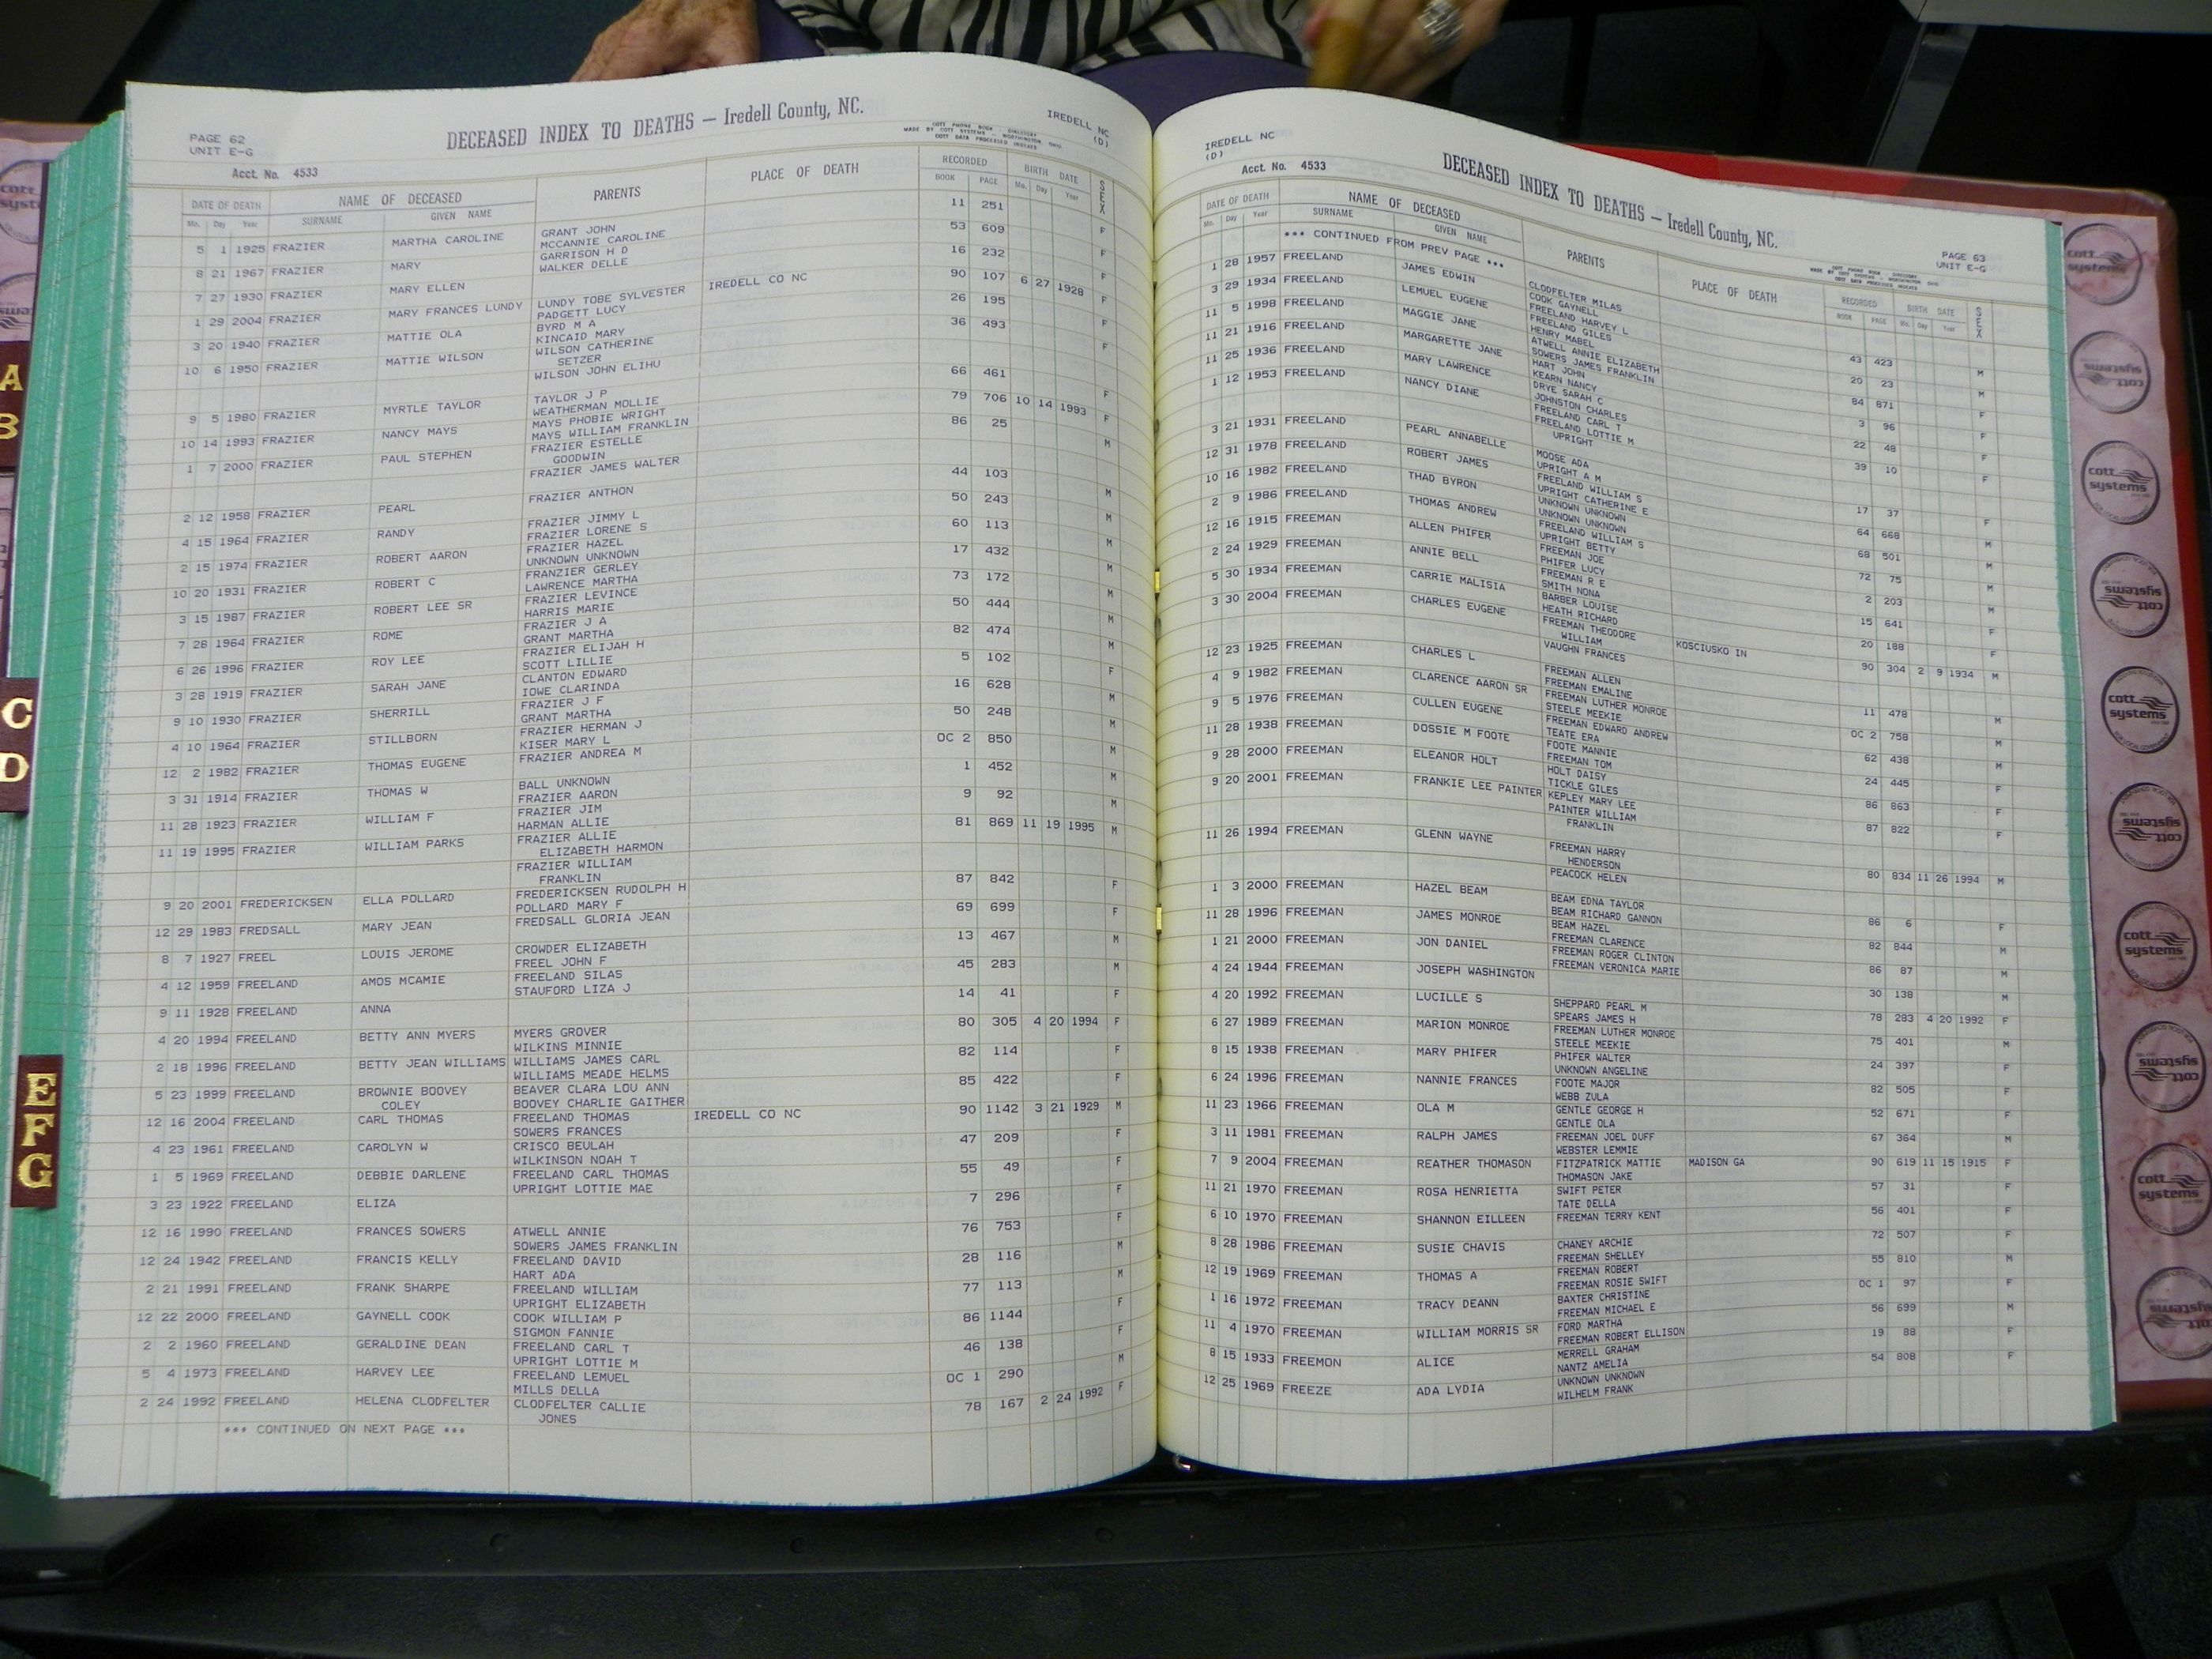 PAGE 62
UNIT E-G
DECEASED INDEX TO DEATHS — Iredell County, NC.
IREDELL NC
(D)
COTT PHONE BOOK - DIRECTORY
MADE BY COTT SYSTEMS — WORTHINGTON, OHIO
COTT DATA PROCESSED INDEXES
Acct. No. 4533
DATE OF DEATH NAME OF DECEASED PARENTS PLACE OF DEATH RECORDED BIRTH DATE SEX
Mo. Day Year SURNAME GIVEN NAME BOOK PAGE Mo. Day Year
5 1 1925 FRAZIER MARTHA CAROLINE GRANT JOHN 11 251 F
MCCANNIE CAROLINE
8 21 1967 FRAZIER MARY GARRISON H D 53 609 F
WALKER DELLE
7 27 1930 FRAZIER MARY ELLEN 16 232 F
1 29 2004 FRAZIER MARY FRANCES LUNDY LUNDY TOBE SYLVESTER IREDELL CO NC 90 107 6 27 1928 F
PADGETT LUCY
3 20 1940 FRAZIER MATTIE OLA BYRD M A 26 195 F
KINCAID MARY
10 6 1950 FRAZIER MATTIE WILSON WILSON CATHERINE 36 493 F
SETZER
WILSON JOHN ELIHU
9 5 1980 FRAZIER MYRTLE TAYLOR TAYLOR J P 66 461 F
WEATHERMAN MOLLIE
10 14 1993 FRAZIER NANCY MAYS MAYS PHOBIE WRIGHT 79 706 10 14 1993 F
MAYS WILLIAM FRANKLIN
1 7 2000 FRAZIER PAUL STEPHEN FRAZIER ESTELLE 86 25 M
GOODWIN
FRAZIER JAMES WALTER
2 12 1958 FRAZIER PEARL FRAZIER ANTHON 44 103 M
4 15 1964 FRAZIER RANDY FRAZIER JIMMY L 50 243 M
FRAZIER LORENE S
2 15 1974 FRAZIER ROBERT AARON FRAZIER HAZEL 60 113 M
UNKNOWN UNKNOWN
10 20 1931 FRAZIER ROBERT C FRANZIER GERLEY 17 432 M
LAWRENCE MARTHA
3 15 1987 FRAZIER ROBERT LEE SR FRAZIER LEVINCE 73 172 M
HARRIS MARIE
7 28 1964 FRAZIER ROME FRAZIER J A 50 444 M
GRANT MARTHA
6 26 1996 FRAZIER ROY LEE FRAZIER ELIJAH H 82 474 M
SCOTT LILLIE
3 28 1919 FRAZIER SARAH JANE CLANTON EDWARD 5 102 F
IOWE CLARINDA
9 10 1930 FRAZIER SHERRILL FRAZIER J F 16 628 M
GRANT MARTHA
4 10 1964 FRAZIER STILLBORN FRAZIER HERMAN J 50 248 M
KISER MARY L
12 2 1982 FRAZIER THOMAS EUGENE FRAZIER ANDREA M OC 2 850 M
3 31 1914 FRAZIER THOMAS W BALL UNKNOWN 1 452 M
FRAZIER AARON
11 28 1923 FRAZIER WILLIAM F FRAZIER JIM 9 92 M
HARMAN ALLIE
11 19 1995 FRAZIER WILLIAM PARKS FRAZIER ALLIE 81 869 11 19 1995 M
ELIZABETH HARMON
FRAZIER WILLIAM
FRANKLIN
9 20 2001 FREDERICKSEN ELLA POLLARD FREDERICKSEN RUDOLPH H 87 842 F
POLLARD MARY F
12 29 1983 FREDSALL MARY JEAN FREDSALL GLORIA JEAN 69 699 F
8 7 1927 FREEL LOUIS JEROME CROWDER ELIZABETH 13 467 M
FREEL JOHN F
4 12 1959 FREELAND AMOS MCAMIE FREELAND SILAS 45 283 M
STAUFORD LIZA J
9 11 1928 FREELAND ANNA 14 41 F
4 20 1994 FREELAND BETTY ANN MYERS MYERS GROVER 80 305 4 20 1994 F
WILKINS MINNIE
2 18 1996 FREELAND BETTY JEAN WILLIAMS WILLIAMS JAMES CARL 82 114 F
WILLIAMS MEADE HELMS
5 23 1999 FREELAND BROWNIE BOOVEY BEAVER CLARA LOU ANN 85 422 F
COLEY BOOVEY CHARLIE GAITHER
12 16 2004 FREELAND CARL THOMAS FREELAND THOMAS IREDELL CO NC 90 1142 3 21 1929 M
SOWERS FRANCES
4 23 1961 FREELAND CAROLYN W CRISCO BEULAH 47 209 F
WILKINSON NOAH T
1 5 1969 FREELAND DEBBIE DARLENE FREELAND CARL THOMAS 55 49 F
UPRIGHT LOTTIE MAE
3 23 1922 FREELAND ELIZA 7 296 F
12 16 1990 FREELAND FRANCES SOWERS ATWELL ANNIE 76 753 F
SOWERS JAMES FRANKLIN
12 24 1942 FREELAND FRANCIS KELLY FREELAND DAVID 28 116 M
HART ADA
2 21 1991 FREELAND FRANK SHARPE FREELAND WILLIAM 77 113 M
UPRIGHT ELIZABETH
12 22 2000 FREELAND GAYNELL COOK COOK WILLIAM P 86 1144 F
SIGMON FANNIE
2 2 1960 FREELAND GERALDINE DEAN FREELAND CARL T 46 138 F
UPRIGHT LOTTIE M
5 4 1973 FREELAND HARVEY LEE FREELAND LEMUEL OC 1 290 M
MILLS DELLA
2 24 1992 FREELAND HELENA CLODFELTER CLODFELTER CALLIE 78 167 2 24 1992 F
JONES
*** CONTINUED ON NEXT PAGE ***
IREDELL NC
(D)
DECEASED INDEX TO DEATHS — Iredell County, NC.
PAGE 63
UNIT E-G
COTT PHONE BOOK - DIRECTORY
MADE BY COTT SYSTEMS — WORTHINGTON, OHIO
COTT DATA PROCESSED INDEXES
Acct. No. 4533
DATE OF DEATH NAME OF DECEASED PARENTS PLACE OF DEATH RECORDED BIRTH DATE SEX
Mo. Day Year SURNAME GIVEN NAME BOOK PAGE Mo. Day Year
*** CONTINUED FROM PREV PAGE ***
CLODFELTER MILAS
1 28 1957 FREELAND JAMES EDWIN COOK GAYNELL 43 423 M
FREELAND HARVEY L
3 29 1934 FREELAND LEMUEL EUGENE FREELAND GILES 20 23 M
HENRY MABEL
11 5 1998 FREELAND MAGGIE JANE ATWELL ANNIE ELIZABETH 84 871 F
SOWERS JAMES FRANKLIN
11 21 1916 FREELAND MARGARETTE JANE HART JOHN 3 96 F
KEARN NANCY
11 25 1936 FREELAND MARY LAWRENCE DRYE SARAH C 22 48 F
JOHNSTON CHARLES
1 12 1953 FREELAND NANCY DIANE FREELAND CARL T 39 10 F
FREELAND LOTTIE M
UPRIGHT
3 21 1931 FREELAND PEARL ANNABELLE MOOSE ADA 17 37 F
UPRIGHT A M
12 31 1978 FREELAND ROBERT JAMES FREELAND WILLIAM S 64 668 M
UPRIGHT CATHERINE E
10 16 1982 FREELAND THAD BYRON UNKNOWN UNKNOWN 68 501 M
UNKNOWN UNKNOWN
2 9 1986 FREELAND THOMAS ANDREW FREELAND WILLIAM S 72 75 M
UPRIGHT BETTY
12 16 1915 FREEMAN ALLEN PHIFER FREEMAN JOE 2 203 M
PHIFER LUCY
2 24 1929 FREEMAN ANNIE BELL FREEMAN R E 15 641 F
SMITH NONA
5 30 1934 FREEMAN CARRIE MALISIA BARBER LOUISE 20 188 F
HEATH RICHARD
3 30 2004 FREEMAN CHARLES EUGENE FREEMAN THEODORE KOSCIUSKO IN 90 304 2 9 1934 M
WILLIAM
VAUGHN FRANCES
12 23 1925 FREEMAN CHARLES L FREEMAN ALLEN 11 478 M
FREEMAN EMALINE
4 9 1982 FREEMAN CLARENCE AARON SR FREEMAN LUTHER MONROE OC 2 758 M
STEELE MEEKIE
9 5 1976 FREEMAN CULLEN EUGENE FREEMAN EDWARD ANDREW 62 438 M
TEATE ERA
11 28 1938 FREEMAN DOSSIE M FOOTE FOOTE MANNIE 24 445 F
FREEMAN TOM
9 28 2000 FREEMAN ELEANOR HOLT HOLT DAISY 86 863 F
TICKLE GILES
9 20 2001 FREEMAN FRANKIE LEE PAINTER KEPLEY MARY LEE 87 822 F
PAINTER WILLIAM
FRANKLIN
11 26 1994 FREEMAN GLENN WAYNE FREEMAN HARRY 80 834 11 26 1994 M
HENDERSON
PEACOCK HELEN
1 3 2000 FREEMAN HAZEL BEAM BEAM EDNA TAYLOR 86 6 F
BEAM RICHARD GANNON
11 28 1996 FREEMAN JAMES MONROE BEAM HAZEL 82 844 M
FREEMAN CLARENCE
1 21 2000 FREEMAN JON DANIEL FREEMAN ROGER CLINTON 86 87 M
FREEMAN VERONICA MARIE
4 24 1944 FREEMAN JOSEPH WASHINGTON 30 138 M
4 20 1992 FREEMAN LUCILLE S SHEPPARD PEARL M 78 283 4 20 1992 F
SPEARS JAMES H
6 27 1989 FREEMAN MARION MONROE FREEMAN LUTHER MONROE 75 401 M
STEELE MEEKIE
8 15 1938 FREEMAN MARY PHIFER PHIFER WALTER 24 397 F
UNKNOWN ANGELINE
6 24 1996 FREEMAN NANNIE FRANCES FOOTE MAJOR 82 505 F
WEBB ZULA
11 23 1966 FREEMAN OLA M GENTLE GEORGE H 52 671 F
GENTLE OLA
3 11 1981 FREEMAN RALPH JAMES FREEMAN JOEL DUFF 67 364 M
WEBSTER LEMMIE
7 9 2004 FREEMAN REATHER THOMASON FITZPATRICK MATTIE MADISON GA 90 619 11 15 1915 F
THOMASON JAKE
11 21 1970 FREEMAN ROSA HENRIETTA SWIFT PETER 57 31 F
TATE DELLA
6 10 1970 FREEMAN SHANNON EILLEEN FREEMAN TERRY KENT 56 401 F
8 28 1986 FREEMAN SUSIE CHAVIS CHANEY ARCHIE 72 507 F
FREEMAN SHELLEY
12 19 1969 FREEMAN THOMAS A FREEMAN ROBERT 55 810 M
FREEMAN ROSIE SWIFT
1 16 1972 FREEMAN TRACY DEANN BAXTER CHRISTINE OC 1 97 F
FREEMAN MICHAEL E
11 4 1970 FREEMAN WILLIAM MORRIS SR FORD MARTHA 56 699 M
FREEMAN ROBERT ELLISON
8 15 1933 FREEMON ALICE MERRELL GRAHAM 19 88 F
NANTZ AMELIA
12 25 1969 FREEZE ADA LYDIA UNKNOWN UNKNOWN 54 808 F
WILHELM FRANK
A
B
C
D
E
F
G
cott
systems
cott
systems
cott
systems
cott
systems
cott
systems
cott
systems
cott
systems
cott
systems
cott
systems